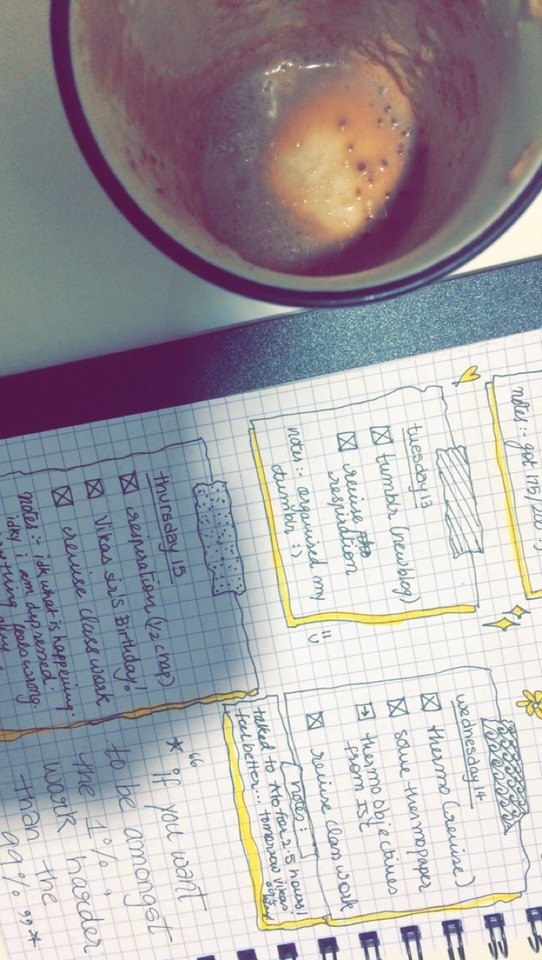 notes:- got 175/200 :)
tuesday 13
tumblr (new blog)
revise
respiration
notes:- organised my
tumblr :)
wednesday 14
thermo (revise)
solve thermopaper
thermo objectives
from ISC
revise class work
notes:
talked to for 2.5 hours!
feel better... tomorrow Vikas
thursday 15
respiration (1/2 chap)
Vikas sir's Birthday!
revise class work
notes:- idk what is happening.
idky i am depressed.
feels wrong.
* "if you want
to be amongst
the 1%,
work harder
than the
99%"*